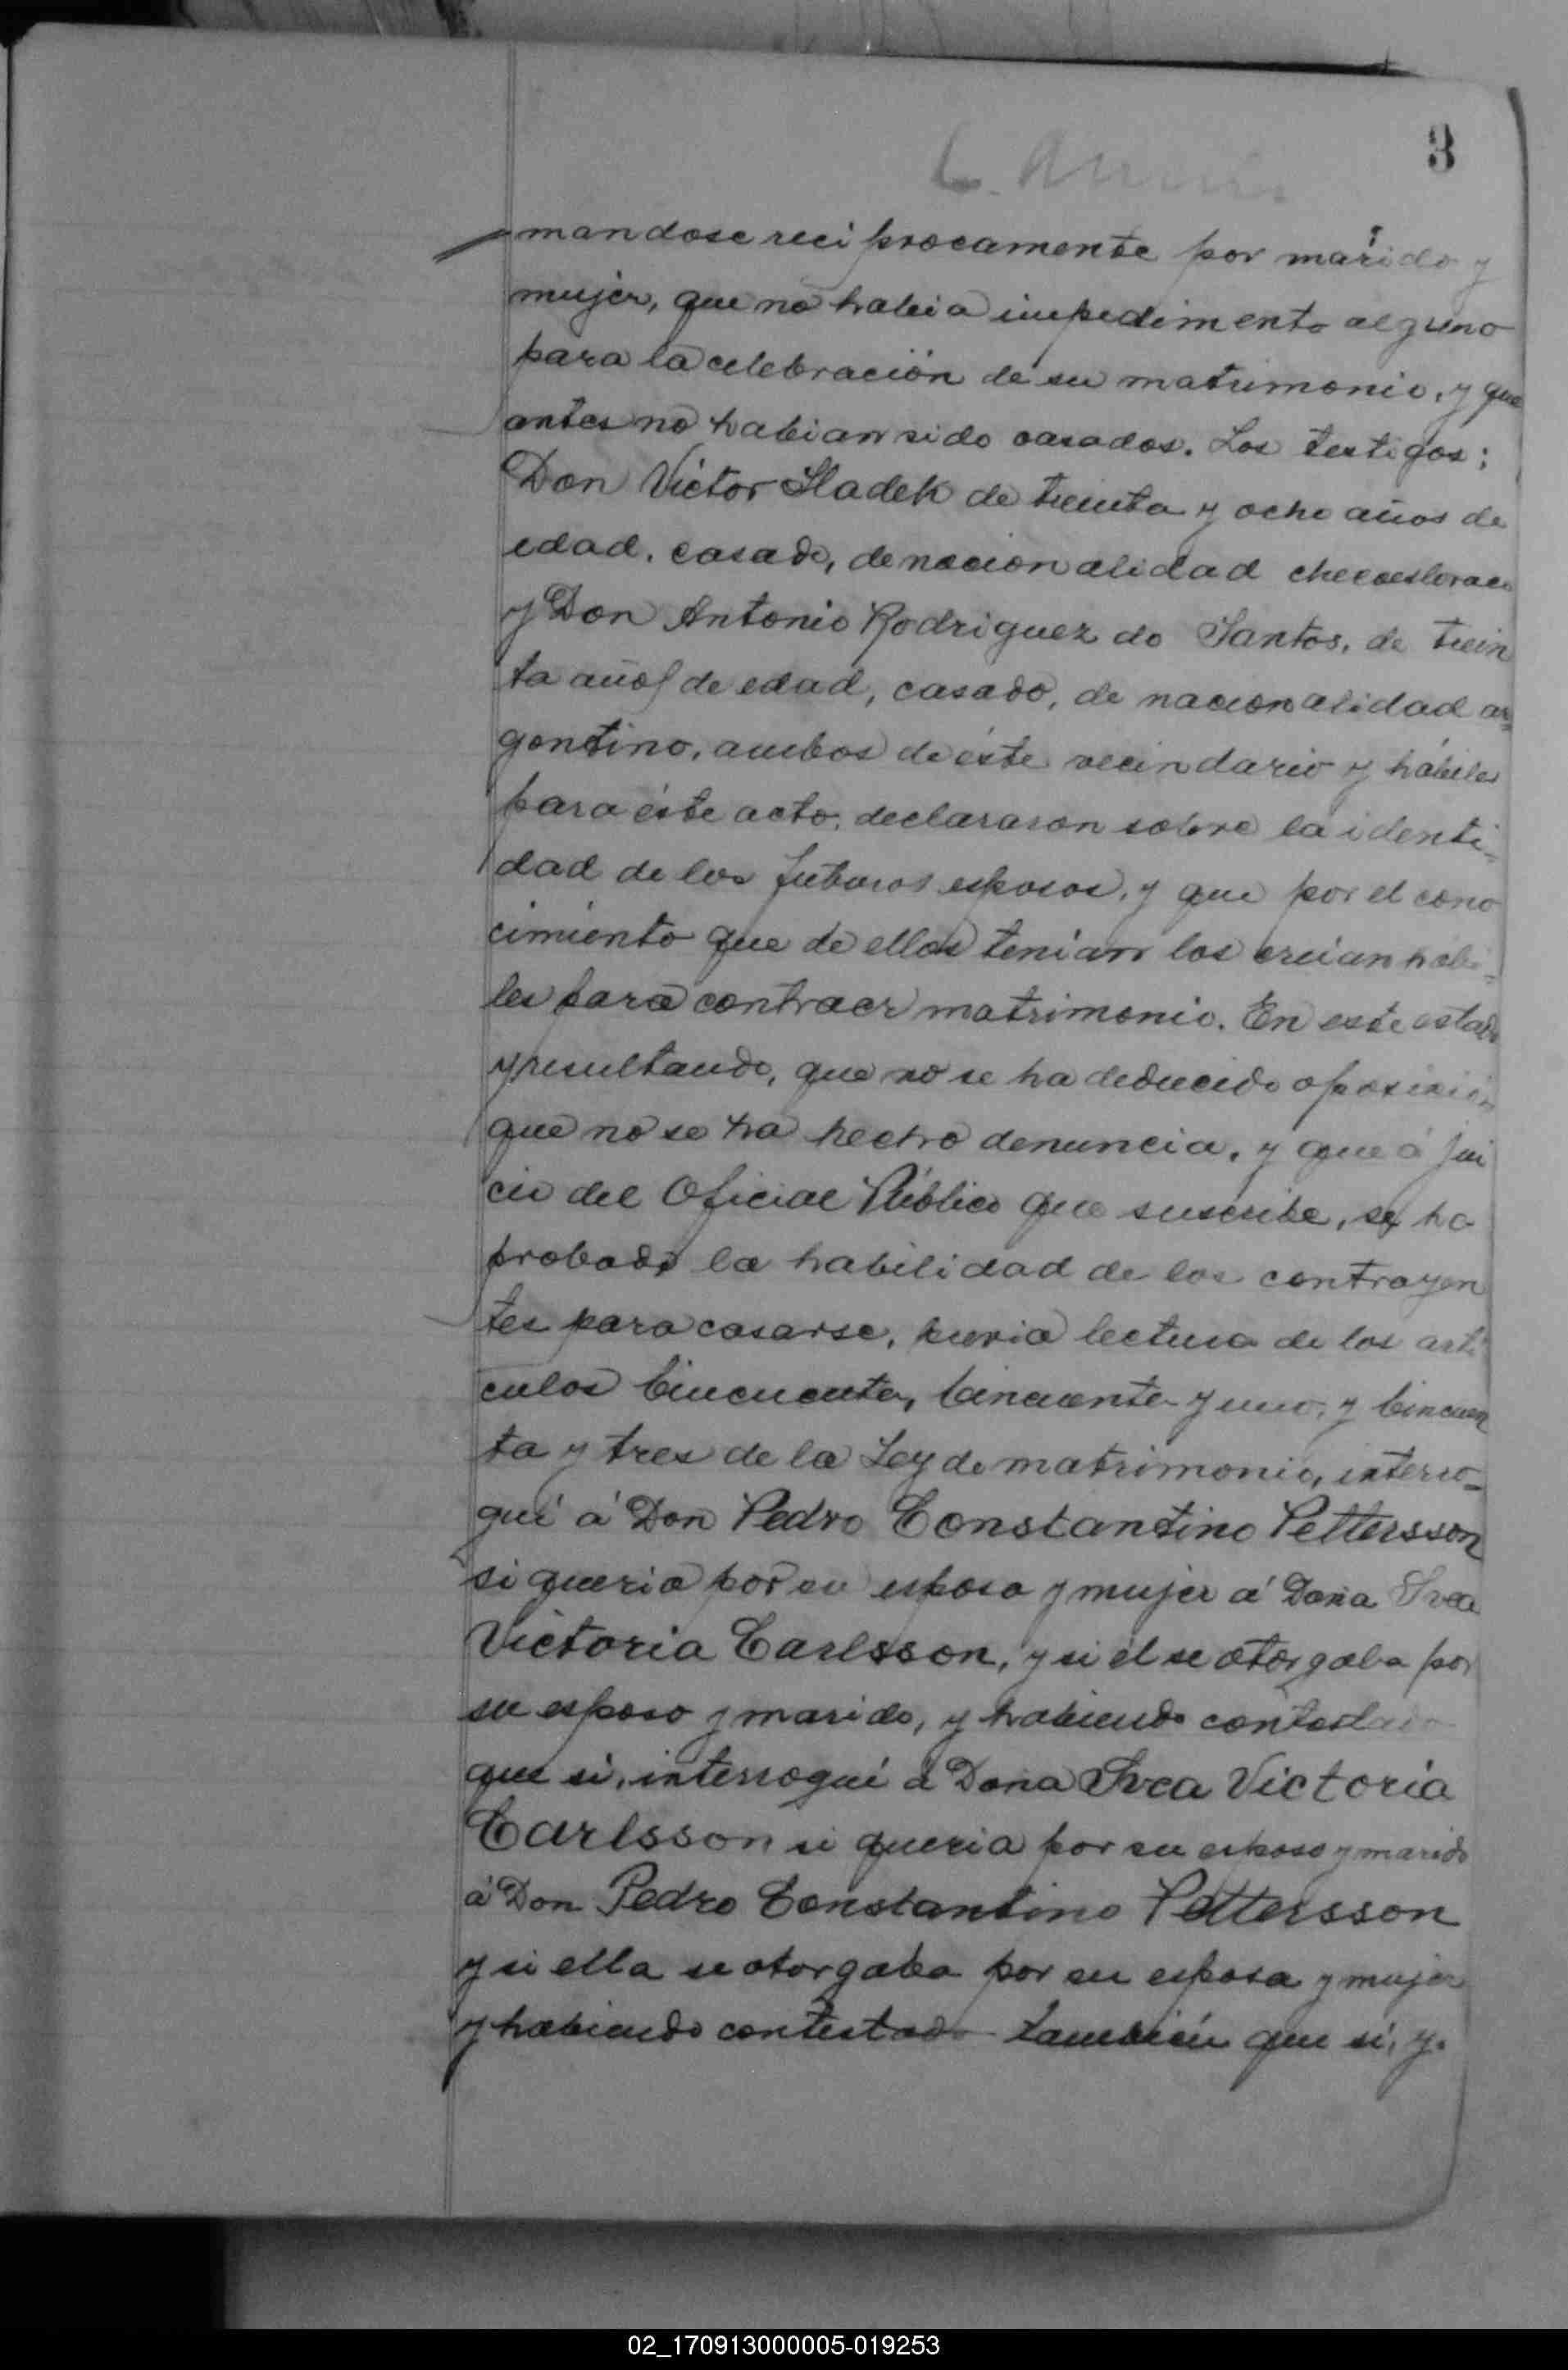 3
mandose reciprocamente por marido y
mujer, que no habia impedimento alguno
para la celebración de su matrimonio, y que
antes no habian sido casados. Los testigos:
Don Victor Sladek de treinta y ocho años de
edad, casado, de nacionalidad checoeslovaco
y Don Antonio Rodriguez do Santos, de trein
ta años de edad, casado, de nacionalidad ar=
gentino, ambos de éste vecindario y hábiles
para éste acto, declararon sobre la identi=
dad de los futuros esposos, y que por el cono
cimiento que de ellos tenian los creian habi=
les para contraer matrimonio. En este estado
y resultando, que no se ha deducido oposición
que no se ha hecho denuncia, y que á jui
cio del Oficial Público que suscribe, se ha
probado la habilidad de los contrayen
tes para casarse, previa lectura de los arti
culos Cincuenta, Cincuenta y uno, y Cincuen
ta y tres de la Ley de matrimonio, interro=
gué á Don Pedro Constantino Pettersson
si queria por su esposa y mujer á Doña Svea
Victoria Carlsson, y si él se otorgaba por
su esposo y marido, y habiendo contestado
que si, interrogué á Doña Svea Victoria
Carlsson si queria por su esposo y marido
á Don Pedro Constantino Pettersson
y si ella se otorgaba por su esposa y mujer
y habiendo contestado también que sí, y.
02_170913000005-019253